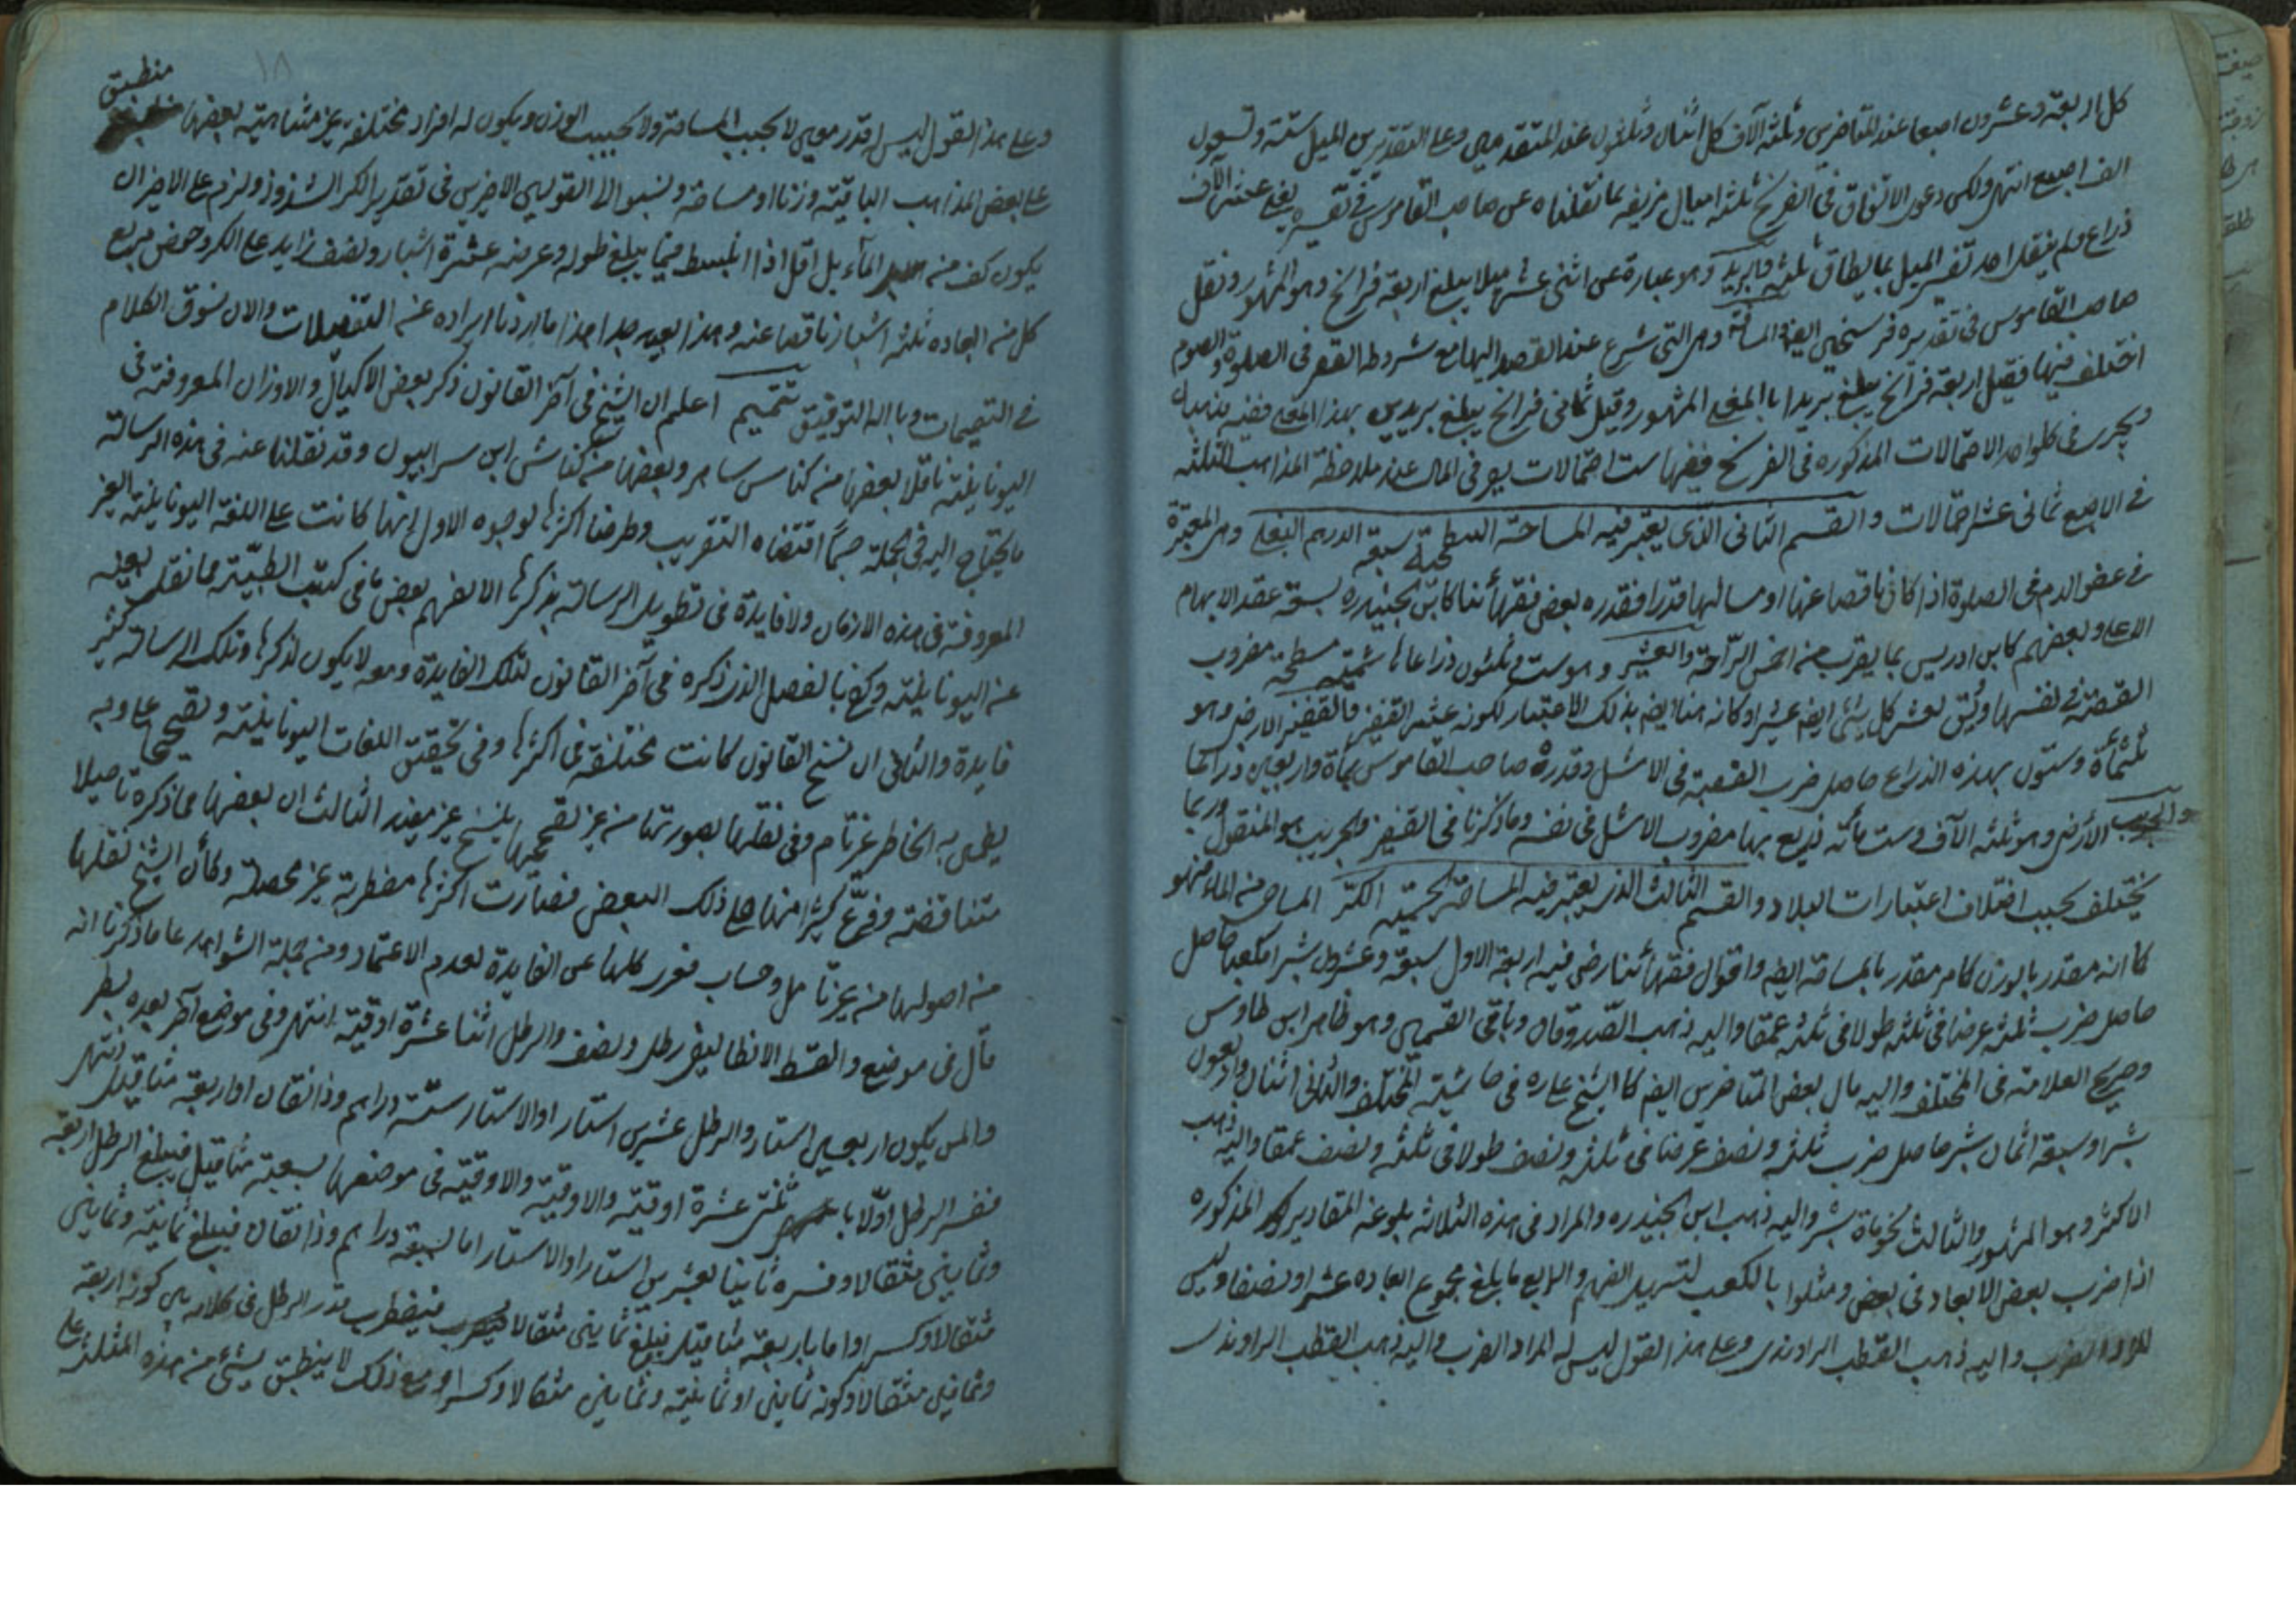 كل اربعة وعشرون اصبعا عند المتاخرين وثلثة الآف كل اثنان وثلثون عند المتقدمين وعلى التقديرين الميل ستة وتسعون
الف اصبع انتهى ولكن دعوى الاتفاق فى الفرسخ ثلثة اميال مزيفه بما نقلناه عن صاحب القاموس فى تفسيره
ذراع ولم ينقل احد تفسير الميل بما يطابق ثلثه والبريد وهو عبارة عن اثنى عشر ميلا يبلغ اربعة فراسخ وهو المشهور ونقل
صاحب القاموس فى تقديره فرسخين ايضا والمسافة وهى التى شرع عند القصد اليها مع شروطه القصر فى الصلوة والصوم
اختلف فيها فقيل اربعة فراسخ يبلغ بريدا بالمعنى المشهور وقيل ثمانى فراسخ يبلغ بريدين بهذا المعنى ففيه مذهبان
ويجرى فى كل واحد الاحتمالات المذكوره فى الفرسخ ففيها ست احتمالات يرتقى فى المال عند ملاحظة المذاهب الثلثه
فى الاصبع ثمانى عشر احتمالات والقسم الثانى الذى يعتبر فيه المساحة السطحية سبعة الدرهم البغلى وهى المعتبرة
فى عفو الدم فى الصلوة اذا كان ناقصا عنها او مسا لها قدرا فقدره بعض فقهائنا كابن الجنيد ره بسعة عقد الابهام
الاعلى وبعضهم كابن ادريس بما يقرب من اخمص الراحة والعشير وهو ست وثلثون ذراعا مسطحة مضروب
القصبة فى نفسها ويق لعشر كل شئ ايضا عشير او كانه هنا ايضا بذلك الاعتبار لكونه عشر القفيز والقفيز الارضى وهو
ثلثمأة وستون بهذه الذراع حاصل ضرب القصبة فى الاشل وقدره صاحب القاموس بمأة واربعين ذراعا
والجريب الأرضى وهو ثلثه الآف وست مأته ذريع بها مضروب الاشل فى نفسه وما ذكرنا فى القفيز والجريب هو المنقول وربما
يختلف بحسب اختلاف اعتبارات البلاد والقسم الثالث الذى يعتبر فيه المساحة الجسمية الكر المساحى من الماء فهو
كما انه مقدر بالوزن كامر مقدر بالمساحة ايضا واقوال فقهائنا رضى فيه اربعة الاول سبعة وعشرون شبرا مكعبا حاصل
حاصل ضرب ثلثه عرضا فى ثلثه طولا فى ثلثه عمقا واليه ذهب الصدوقان وباقى القميين وهو ظاهر ابن طاوس
وصريح العلامة فى المختلف واليه مال بعض المتاخرين ايضا كالشيخ على ره فى حاشية المختلف والثانى اثنان واربعون
شبرا وسبعة اثمان شبر حاصل ضرب ثلثه ونصف عرضا فى ثلثه ونصف طولا فى ثلثه ونصف عمقا واليه ذهب
الاكثر وهو المشهور والثالث نحو مأة شبر واليه ذهب ابن الجنيد ره والمراد فى هذه الثلاثه بلوغه المقادير المذكوره
اذا ضرب بعض الابعاد فى بعض ومثلوا بالمكعب لتسهيل الفهم والرابع ما بلغ مجموع ابعاده عشرا ونصفا وليس
المراد الضرب واليه ذهب القطب الراوندى وعلى هذا القول ليس له المراد الضرب واليه ذهب القطب الراوندى
١٨
منطبق
وعلى هذا القول ليس له قدر معين لا بحسب المساحة ولا بحسب الوزن ويكون له افراد مختلفه غير متناهية بعضها
على بعض المذاهب الباقية وزنا او مساحة ونسبوا الى القولين الاخيرين فى تقدير الكر الشذوذ ولزم على الاخير ان
يكون كف من الماء بل اقل اذا انبسط فيما يبلغ طوله وعرضه عشرة اشبار ونصف زايد على الكر وحوض مربع
كل من ابعاده ثلثه اشبار ناقصا عنه وهذا بعيد جدا هذا ما اردنا ايراده عند التفصيلات والان نسوق الكلام
فى التتميمات وبالله التوفيق تتميم اعلم ان الشيخ فى آخر القانون ذكر بعض الاكيال والاوزان المعروفة فى
اليونانية ناقلا بعضها من كناس ساهر وبعضها من كناش ابن سرابيون وقد نقلنا عنه فى هذه الرسالة
ما يحتاج اليه فى الجملة حسبما اقتضاه التقريب وطرحنا اكثرها لوجوه الاول انها كانت على اللغة اليونانية الغير
المعروفة فى هذه الازمان ولا فايدة فى تطويل الرسالة بذكرها الا لفهم بعض ما فى كتب الطبية مما نقلت بعينه
عن اليونانية وكفى بالفصل الذى ذكره فى آخر القانون لتلك الفايدة ومعه لا يكون لذكرها وتلك الرسالة كثير
فايدة والثانى ان نسخ القانون كانت مختلفة فى اكثرها وفى تحقيق اللغات اليونانية وتصحيحها على وجه
يطمئن به الخاطر عن تام وفى نقلها بصورتها من غير تصحيحها بنسخ غير مفيد الثالث ان بعضها مما ذكره تاصيلا
متناقضة وفرع كثيرا منها على ذلك البعض فصارت اكثرها مضطربة غير محصلة وكأن الشيخ نقلها
من اصولها من غير تامل وحساب فعرى كلها عن الفايدة لعدم الاعتماد ومن جملة الشواهد على ما ذكرنا انه
قال فى موضع والقسط الانطاليقى رطل ونصف والرطل اثنا عشرة اوقية انتهى وفى موضع آخر بعده بسطر
والمن يكون اربعين استار والرطل عشرين استار او الاستار ستة دراهم وذانقان او اربعة مثاقيل انتهى
ففسر الرطل اولا باثنتى عشرة اوقية والاوقية والاوقية فى موضعها بسبعة مثاقيل فيبلغ الرطل اربعة
وثمانين مثقالا وفسره ثانيا بعشرين استارا والاستار اما بستة دراهم وذانقان فيبلغ ثمانية وثمانين
مثقالا وكسرا واما باربعة مثاقيل فيبلغ ثمانين مثقالا فيضطرب قدر الرطل فى كلامه بين كونه اربعة
وثمانين مثقالا وكونه ثمانين او ثمانية وثمانين مثقالا وكسرا ومع ذلك لا ينطبق شئ من هذه المثلثه على